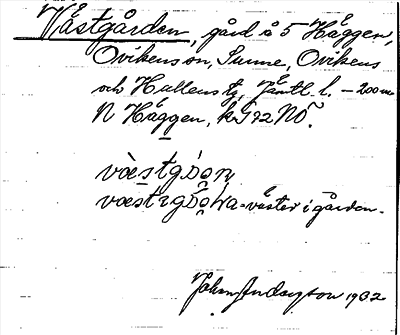 Västgården, gård å 5 Häggen,
Ovikens sn, Sunne, Ovikens
och Hallens tg, Jämtl. l. – 200 m
N Häggen, k 92 NO.
västgɔ̀n,
- väster i gården.
Johan Anderzson 1932